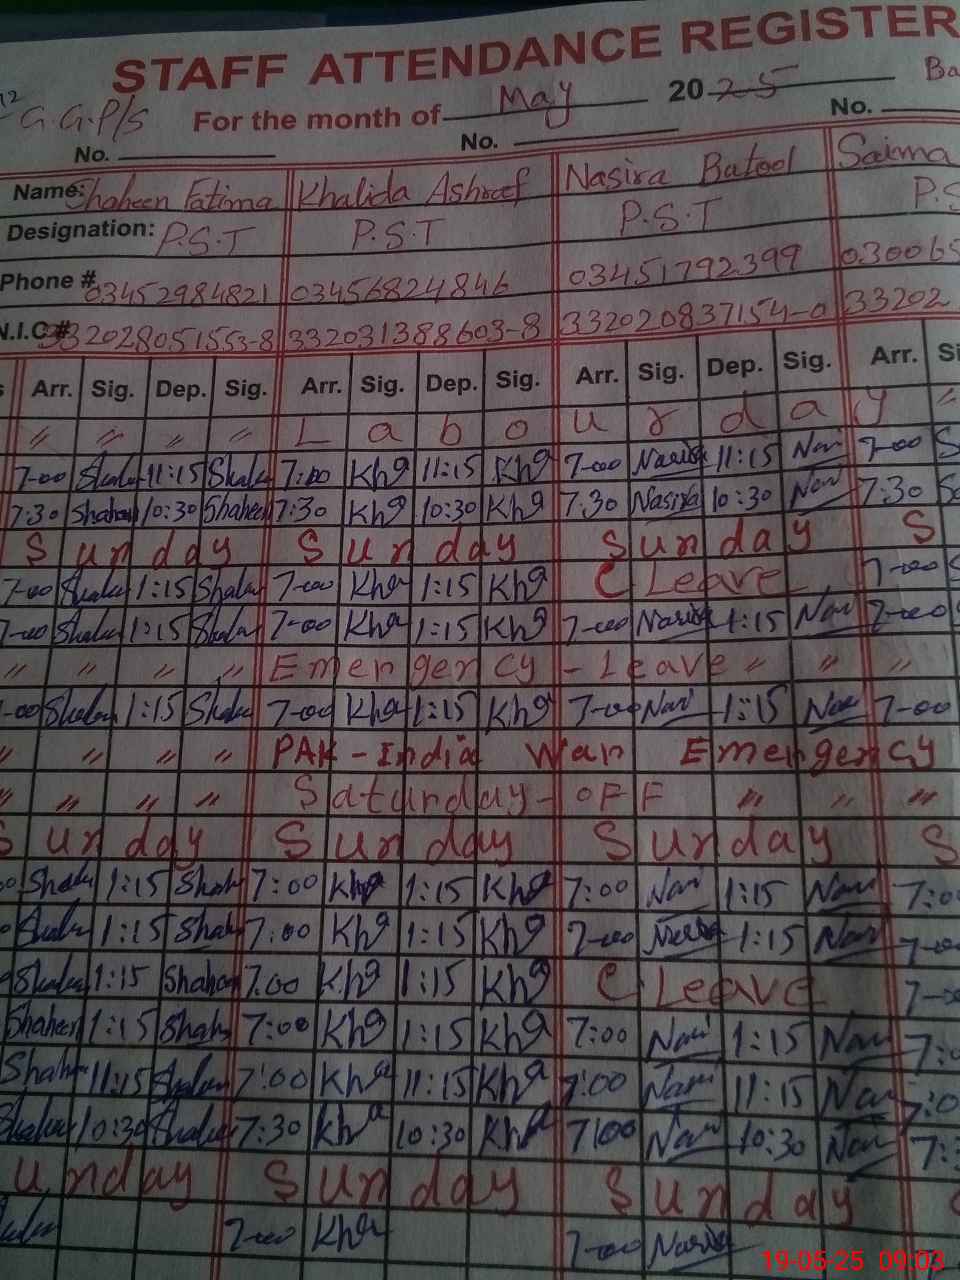 STAFF ATTENDANCE REGISTER
G.G.P/S For the month of May 2025 Ba
No. No. No.
Name: Shaheen Fatima Khalida Ashraf Nasira Batool Saima
Designation: P.S.T P.S.T P.S.T P.S
Phone # 03452984821 03456824846 03451792399 030065
N.I.C # 332028051553-8 332031388603-8 332020837154-0 33202
Arr. Sig. Dep. Sig. Arr. Sig. Dep. Sig. Arr. Sig. Dep. Sig. Arr. Si
" " " " Labour day "
7-00 Shah 11:15 Shah 7:00 Kha 11:15 Kha 7-00 Nasira 11:15 Nasi 7-00 S
7:30 Shaheen 10:30 Shaheen 7:30 Kha 10:30 Kha 7:30 Nasira 10:30 Nasi 7:30 Sa
Sunday Sunday Sunday S
7-00 Shah 1:15 Shah 7-00 Kha 1:15 Kha C Leave 7-00 S
7-00 Shah 1:15 Shah 7-00 Kha 1:15 Kha 7-00 Nasira 1:15 Nasi 7-00 S
" " " " Emergency - Leave " " "
-00 Shah 1:15 Shah 7-00 Kha 1:15 Kha 7-00 Nasi 1:15 Nasi 7-00
" " " " PAK-India War Emergency
" " " " Saturday-OFF " " "
Sunday Sunday Sunday S
Shah 1:15 Shah 7:00 Kha 1:15 Kha 7:00 Nasi 1:15 Nasi 7:0
Shah 1:15 Shah 7:00 Kha 1:15 Kha 7-00 Nasira 1:15 Nasi 7-00
Shah 1:15 Shaheen 7:00 Kha 1:15 Kha C Leave 7-00
Shaheen 1:15 Shah 7:00 Kha 1:15 Kha 7:00 Nasi 1:15 Nasi 7:0
Shah 11:15 Shah 7:00 Kha 11:15 Kha 7:00 Nasi 11:15 Nasi 7:0
Shah 10:30 Shah 7:30 Kha 10:30 Kha 7:00 Nasi 10:30 Nasi 7:3
unday Sunday Sunday
7-00 Kha 7-00 Nasira
19-05-25 09:03